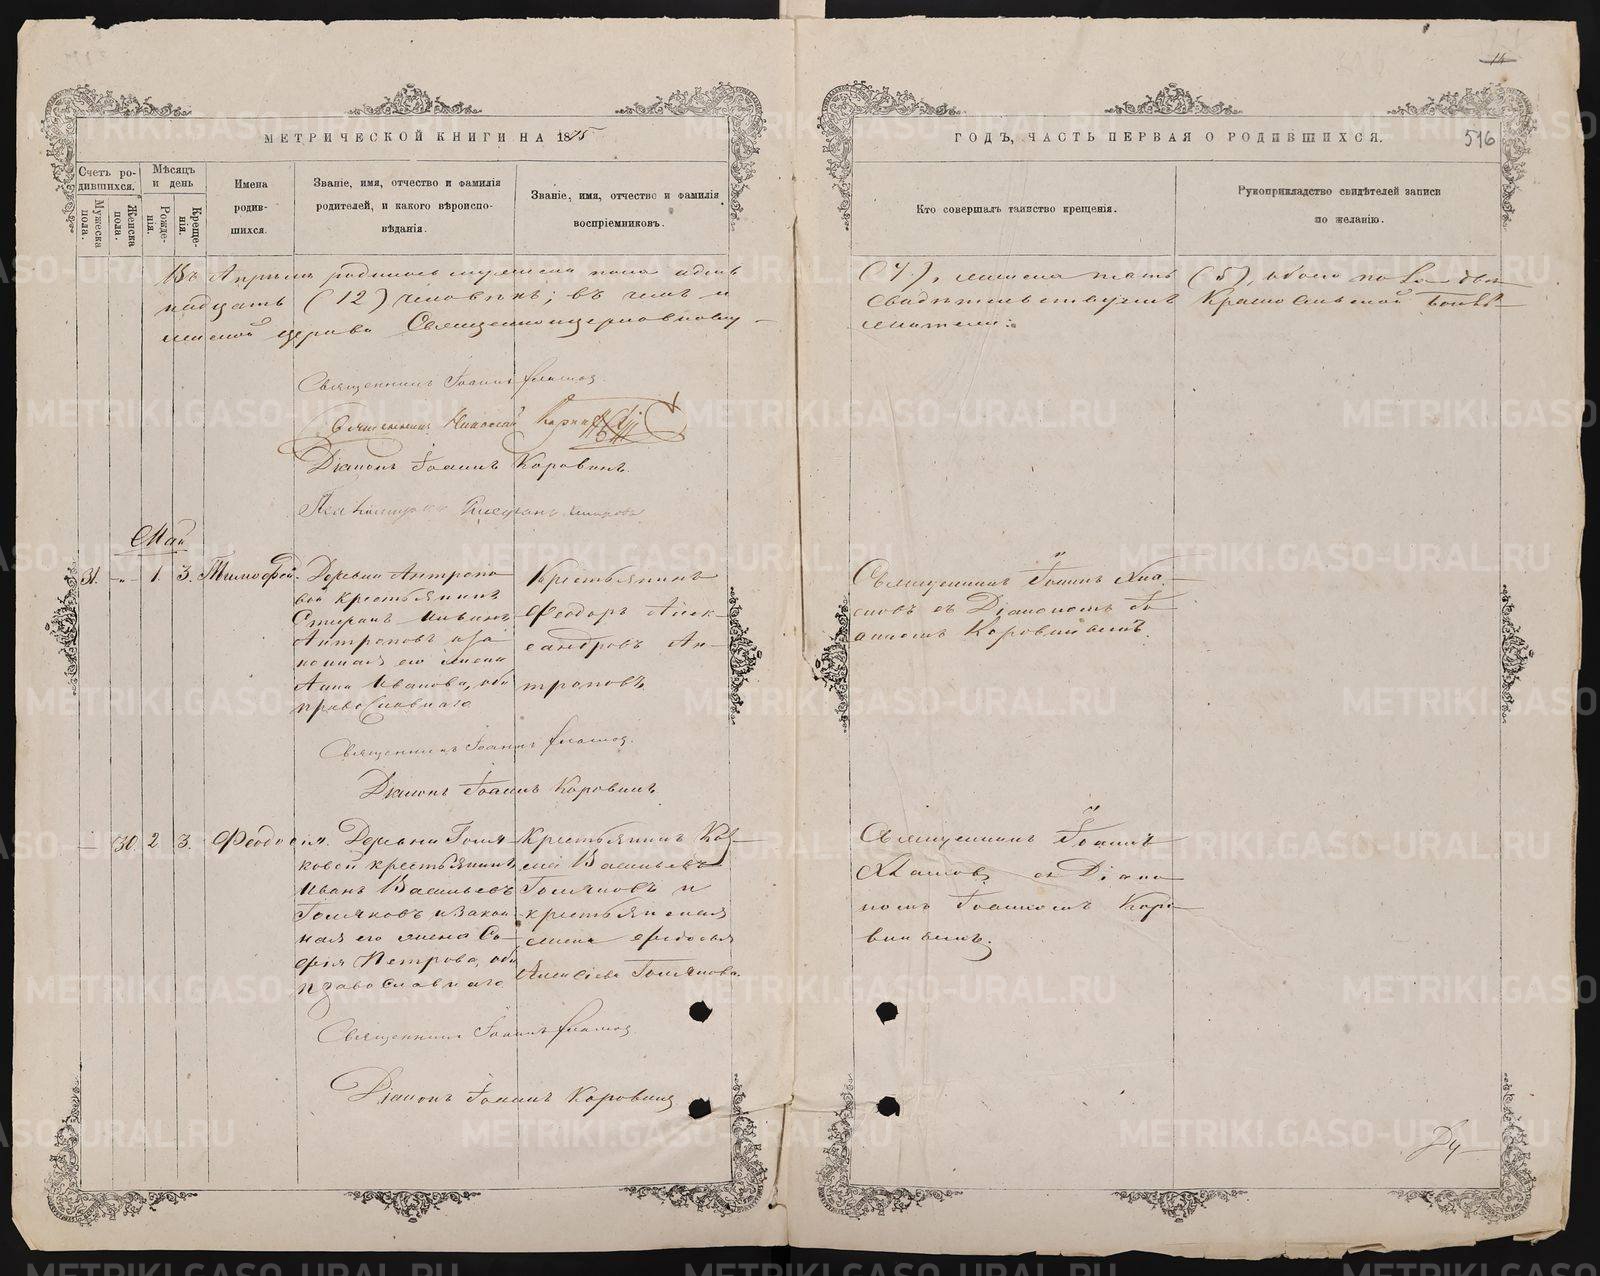 МЕТРИЧЕСКОЙ КНИГИ НА 1875
ГОДЪ, ЧАСТЬ ПЕРВАЯ О РОДИВШИХСЯ.
516
Счетъ ро-
дившихся.
Мужеска
пола.
Женска
пола.
Мѣсяцъ
и день
Рожде-
нія.
Креще-
нія.
Имена
родив-
шихся.
Званіе, имя, отчество и фамилія
родителей, и какого вѣроиспо-
вѣданія.
Званіе, имя, отчество и фамилія
воспріемниковъ.
Кто совершалъ таинство крещенія.
Рукоприкладство свидѣтелей записи
по желанію.
Въ Апрѣлѣ родилось мужеска пола
(7), женска пять (5), обоего по
надцать (12) человѣкъ; въ чемъ и
свидѣтельствуемъ
церкви Священноцерковнослу-
жители:
Священникъ Іоаннъ
Священникъ Николай
Діаконъ Іоаннъ Коровинъ.
Май
31. - " - 1. 3. Тимофей.
Деревни Антропо
вой крестьянинъ
Антроповъ и за
конная его жена
Анна Иванова, оба
православнаго
Крестьянинъ
Феодоръ Алек-
сандровъ Ан-
троповъ
Священникъ Іоаннъ
съ Діакономъ Іо
анномъ Коровинымъ.
Священникъ Іоаннъ
Діаконъ Іоаннъ Коровинъ
- 30. 2 3. Феодосія.
Деревни Голя-
ковой крестьянинъ
Иванъ Васильевъ
Голяковъ и закон
ная его жена Со-
фія Петрова, оба
православнаго
Крестьянинъ
Васильевъ
Голяковъ и
крестьянская
жена Феодосья
Алексіева Голякова.
Священникъ Іоаннъ
съ Діако-
номъ Іоанномъ Коро-
винымъ.
Священникъ Іоаннъ
Діаконъ Іоаннъ Коровинъ
METRIKI.GASO-URAL.RU